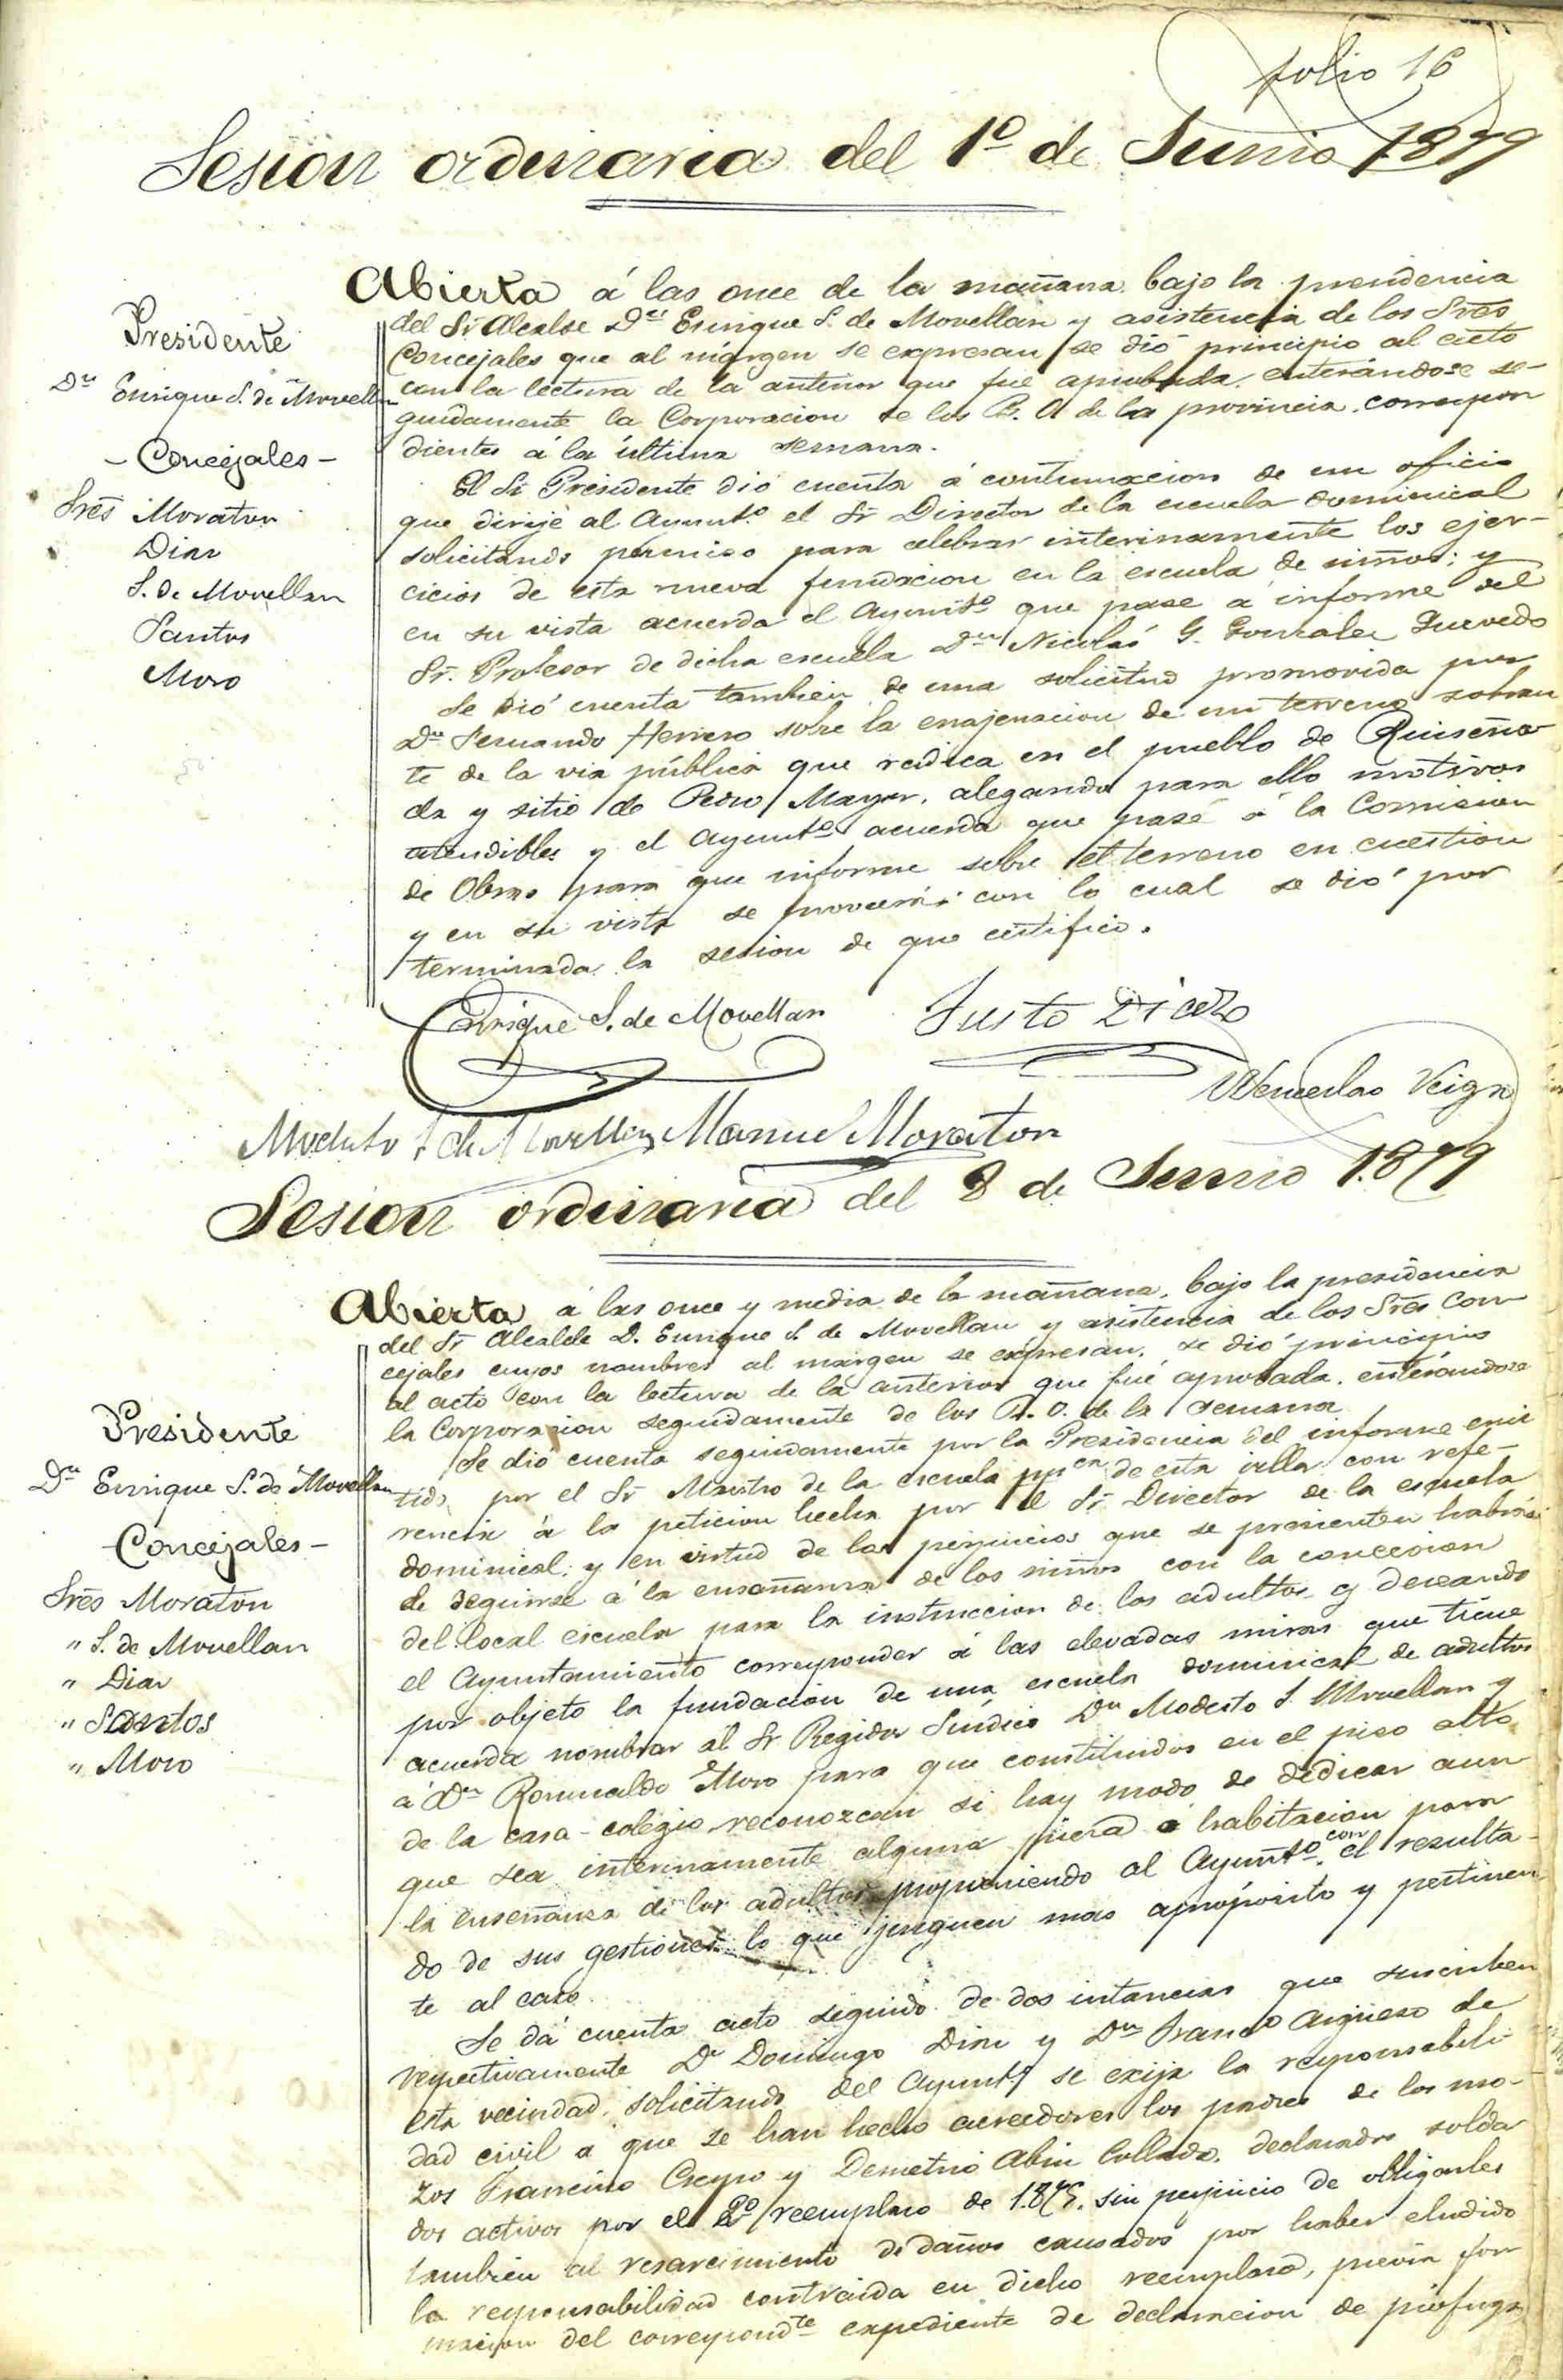 folio 16
Sesion ordinaria del 1º de Junio 1879
Presidente
Dn Enrique S. de Movellan
- Concejales -
Sres Moraton
Diaz
S. de Movellan
Santos
Moro
Abierta á las once de la mañana bajo la presidencia
del Sr Alcalde Dn Enrique S. de Movellan y asistencia de los Sres
Concejales que al márgen se expresan se dió principio al acto
con la lectura de la anterior que fué aprobada, enterándose se-
guidamente la Corporacion de los B. O de la provincia, correspon
dientes á la última semana.
El Sr Presidente dió cuenta á continuacion de un oficio
que dirije al Ayuntº el Sr Director de la escuela dominical
solicitando permiso para celebrar interinamente los ejer-
cicios de esta nueva fundacion en la escuela de niños; y
en su vista acuerda el Ayuntº que pase á informe del
Sr. Profesor de dicha escuela Dn Nicolás G. Gonzalez Quevedo
Se dió cuenta tambien de una solicitud promovida por
Dn Fernando Herrero sobre la enajenacion de un terreno sobran
te de la via pública que radica en el pueblo de Ruiseña-
da y sitio de Pedro Mayor, alegando para ello motivos
atendibles y el Ayuntº acuerda que pase á la Comision
de Obras para que informe sobre el terreno en cuestion
y en su vista se proveerá; con lo cual se dió por
terminada la sesion de que certifico.
Enrique S. de Movellan Justo Diaz
Wenceslao Veiga
Modesto S. de Movellan Manuel Moraton
Sesion ordinaria del 8 de Junio 1.879
Presidente
Dn Enrique S. de Movellan
- Concejales -
Sres Moraton
" S. de Movellan
" Diaz
" Santos
" Moro
Abierta á las once y media de la mañana, bajo la presidencia
del Sr Alcalde D. Enrique S. de Movellan y asistencia de los Sres Con
cejales cuyos nombres al margen se expresan, se dió principio
al acto con la lectura de la anterior que fué aprobada, enterándose
la Corporacion seguidamente de los B. O. de la semana
Se dió cuenta seguidamente por la Presidencia del informe emi
tido por el Sr Maestro de la escuela ppca de esta villa con refe-
rencia á la peticion hecha por el Sr Director de la escuela
dominical; y en virtud de los perjuicios que se presienten habrán
de seguirse á la enseñanza de los niños con la concesion
del local escuela para la instruccion de los adultos y deseando
el Ayuntamiento corresponder á las elevadas miras que tiene
por objeto la fundacion de una escuela dominical de adultos
acuerda nombrar al Sr Regidor Síndico Dn Modesto S. Movellan y
á Dn Romualdo Moro para que constituidos en el piso alto
de la casa-colegio reconozcan si hay modo de dedicar aun
que sea interinamente alguna pieza ó habitacion para
la enseñanza de los adultos proponiendo al Ayuntº con el resulta-
do de sus gestiones lo que juzguen mas apropósito y pertinen
te al caso.
Se dá cuenta acto seguido de dos intancias que suscriben
respectivamente Dn Domingo Diaz y Dn Francº Argüeso de
esta vecindad, solicitando del Ayuntº se exija la responsabili-
dad civil á que se han hecho acreedores los padres de los mo-
zos Francisco Crespo y Demetrio Abin Collado, declarados solda
dos activos por el 2º reemplazo de 1.875, sin perjuicio de obligarles
tambien al resarcimiento de daños causados por haber eludido
la responsabilidad contraida en dicho reemplazo, previa for
macion del correspondte expediente de declaracion de prófugo